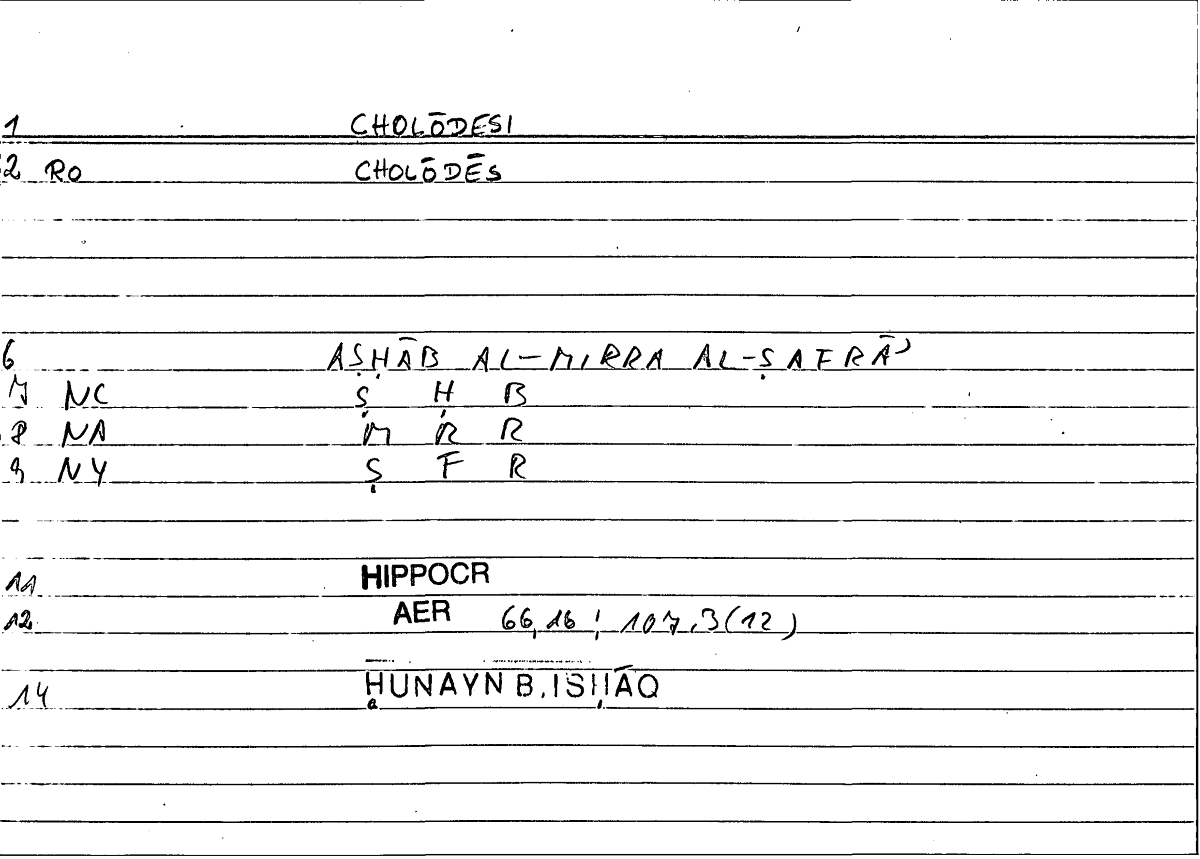 1 CHOLŌDESI
2 RO CHOLŌDĒS
6 AṢḤĀB AL-MIRRA AL-ṢAFRĀʾ
7 NC Ṣ Ḥ B
8 NA M R R
9 NY Ṣ F R
11 HIPPOCR
12 AER 66,16; 107,3(12)
14 ḤUNAYN B. ISḤĀQ